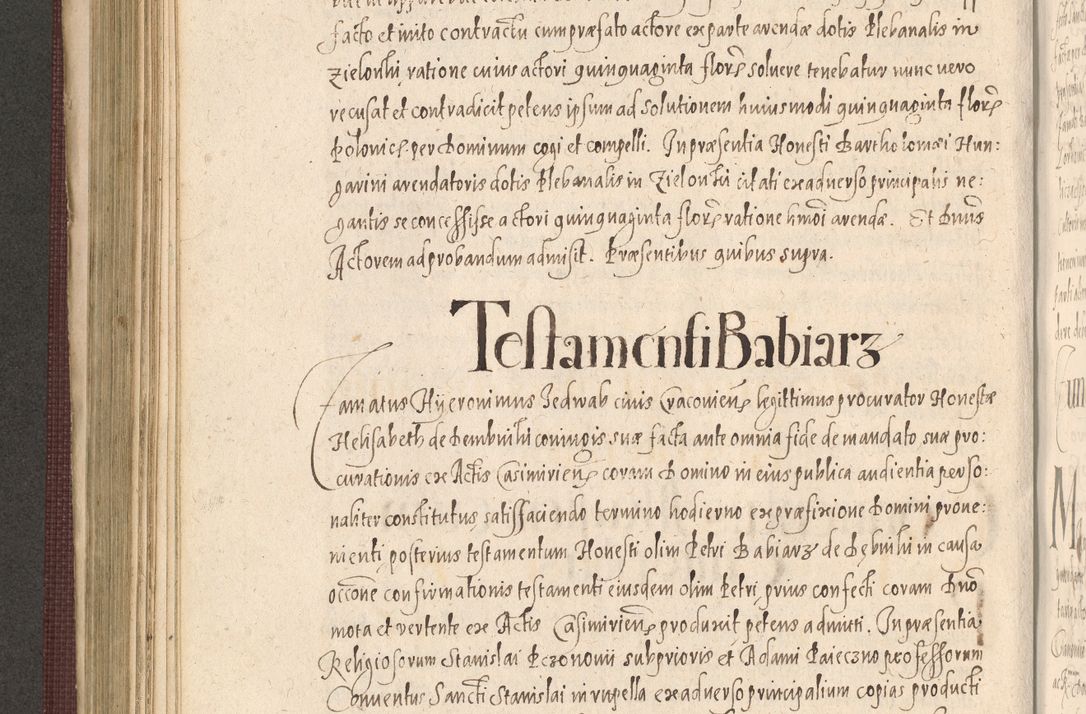 facto et inito contractu cum præfato actore ex parte arendæ dotis Plebanalis in
Zielonki ratione cuius actori quinquaginta floreɲ solvere tenebatur nunc vero
recusat et contradicit petens ipsum ad solutionem huiusmodi quinquaginta floreɲ
Polonicɲ per Dominum cogi et compelli. In præsentia Honesti Bartholomæi Hun-
garini arendatoris dotis Plebanalis in Zielonki citati ex adverso principalis ne:
gantis se concessisse actori quinquaginta floreɲ ratione hmōi arendæ. Et Dnus
Actorem ad probandum admisit. Præsentibus quibus supra.
Testamenti Babiarz
Famatus Hyeronimus Jedwab civis Cracovienɲ legittimus procurator Honestæ
Helisabeth de Dembniki coniugis suæ facta ante omnia fide de mandato suæ pro:
curationis ex Actis Casimirienɲ coram Domino in eius publica audientia perso:
naliter constitutus satisfaciendo termino hodierno ex præfixione Domini prove:
nienti, posterius testamentum Honesti olim Petri Babiarz de Dębniki in causa
occōne confirmationis testamenti eiusdem olim Petri, prius confecti coram Dno
mota et vertente ex Actis Casimirienɲ produxit petens admitti. In præsentia
Religiosorum Stanislai Pczonovii subprioris et Adami Paieczno professorum
Conventus Sancti Stanislai in rupella ex adverso principalium copias producti